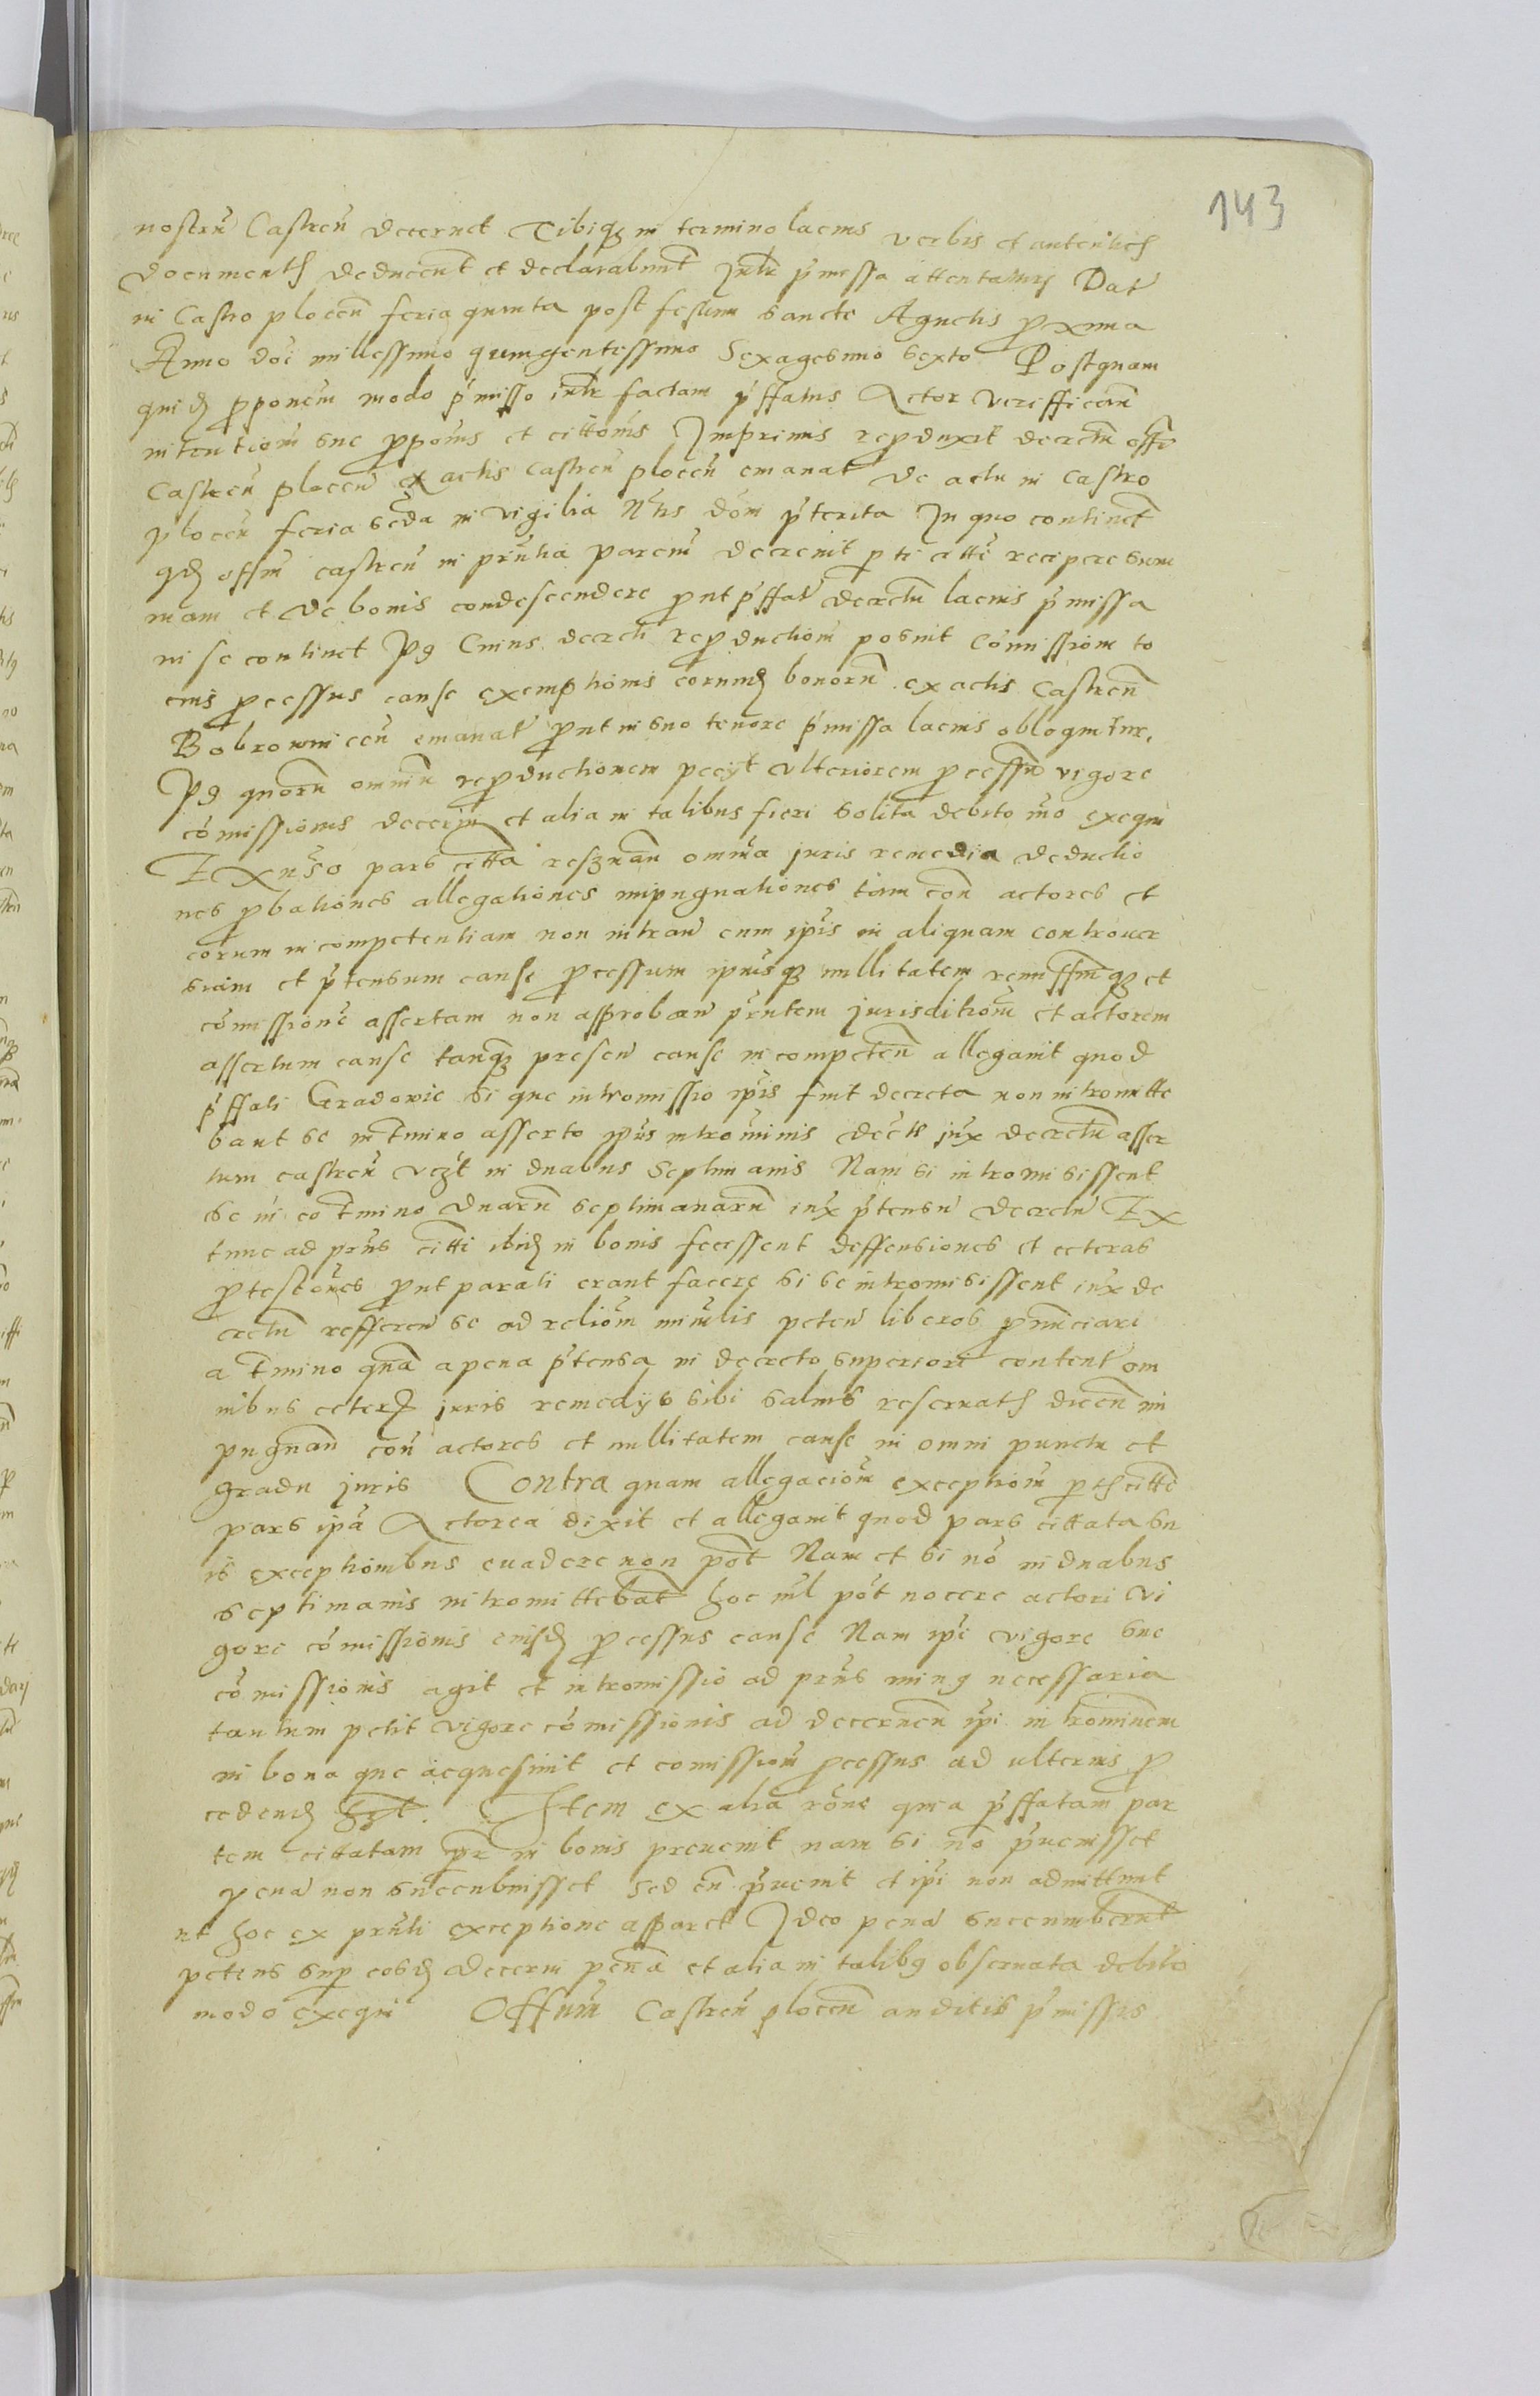 143
nostrū Castreñ decernet Tibiqȝ in termino lacius verbis et autenticis
documentis deducent et declarabunt Iudr p̄missa attentaturus Dat
in Castro ploceñ feria quinta post festum sancte Agnetis proxima
Anno dōi millessimo quingentessimo Sexagesimo sexto Postquam
quidē proponem modo p̄misso iudr factam p̄ffatus Actor verifficañ
intentiom̄ sue propoīs et cittoīs Imprimis reproduxit decretū offi
Castreñ ploceñ ex actis Castreñ ploceñ emanat de actu in Castro
ploceñ feria scda in vigilia Ntis dom̄ p̄terita In quo continet
qd offm̄ castreñ in prn̄tia parciū decrevit parti citte recipere sum
mam et de bonis condescendere prout p̄ffat decretū lacius p̄missa
in se continet Pg Cuius decreti reproductiom̄ posuit cōmissiom̄ to
cius processus cause exemptionis eorumdē bonorū ex actis Castreñ
Bobrowniceñ emanat prout in suo tenore p̄missa lacius obloquitur,
Pg quorū omniū reproductionem peciit ulteriorem processū vigore
cōmissionis decerni et alia in talibus fieri solita debito mō exequi
Ex adverso pars citta reservañ omnia juris remedia deductio
nes probationes allegationes impugnationes tam coñ actores et
eorum incompetentiam non intrañ cum ipīs in aliquam controver
siam et p̄tensum cause processum ipiusqȝ nullitatem remissmqȝ et
cōmissionē assertam non approbañ prn̄tem jurisditiom̄ et actorem
assertum cause tanqȝ preseñ cause incompeteñ allegavit quod
p̄ffati Gradowic si que intromissio ipīs fuit decreta non intromitte
bant se in tmino asserto ipius intrōminis decte jux decretū asser
tum castreñ vczt in duabus septimanis Nam si intromisissent
se in eo tmino duarū septimanarū jux p̄tensū decretū Ex
tunc ad prn̄s citti ibidē in bonis fecissent deffensiones et ceteras
protestōnes prout parati erant facere si se intromisissent jux de
cretū referreñ se ad reliom̄ mīnlis peteñ liberos pronunciari
a tmino quā a pena p̄tensa in decreto superiori content om
nibus ceterȝ juris remedijs sibi salvis reservatis diceñ im
pugnañ coñ actores et nullitatem cause in omni punctu et
gradu juris Contra quam allegaciom̄ exceptiom̄ partis citte
pars ipā Actorea dixit et allegavit quod pars cittata su
is exceptionibus evadere non pōt Nam et si nō in duabus
septimanis intromittebat hoc nil pōt nocere actori vi
gore cōmissionis eiusdē processus cause Nam ipē vigore sue
cōmissionis agit et intromissio ad prn̄s minꝰ necessaria
tantum petit vigore cōmissionis ad decerneñ ipī intrōminem
in bona que acquesivit et comissiom̄ processus ad ulterius pro
cedendē hȝt. Item ex alia rōne quia p̄ffatam par
tem cittatam pr̄ in bonis prevenit nam si nō p̄venisset
pena non sucubuisset sed eā p̄venit et ipī non admittunt
ut hoc ex prn̄ti exceptione apparet Ideo pena succumberunt
petens sup eosdē decerni pēnā et alia in talibꝰ observata debito
modo exequi Offium̄ Castreñ ploceñ auditis p̄missis